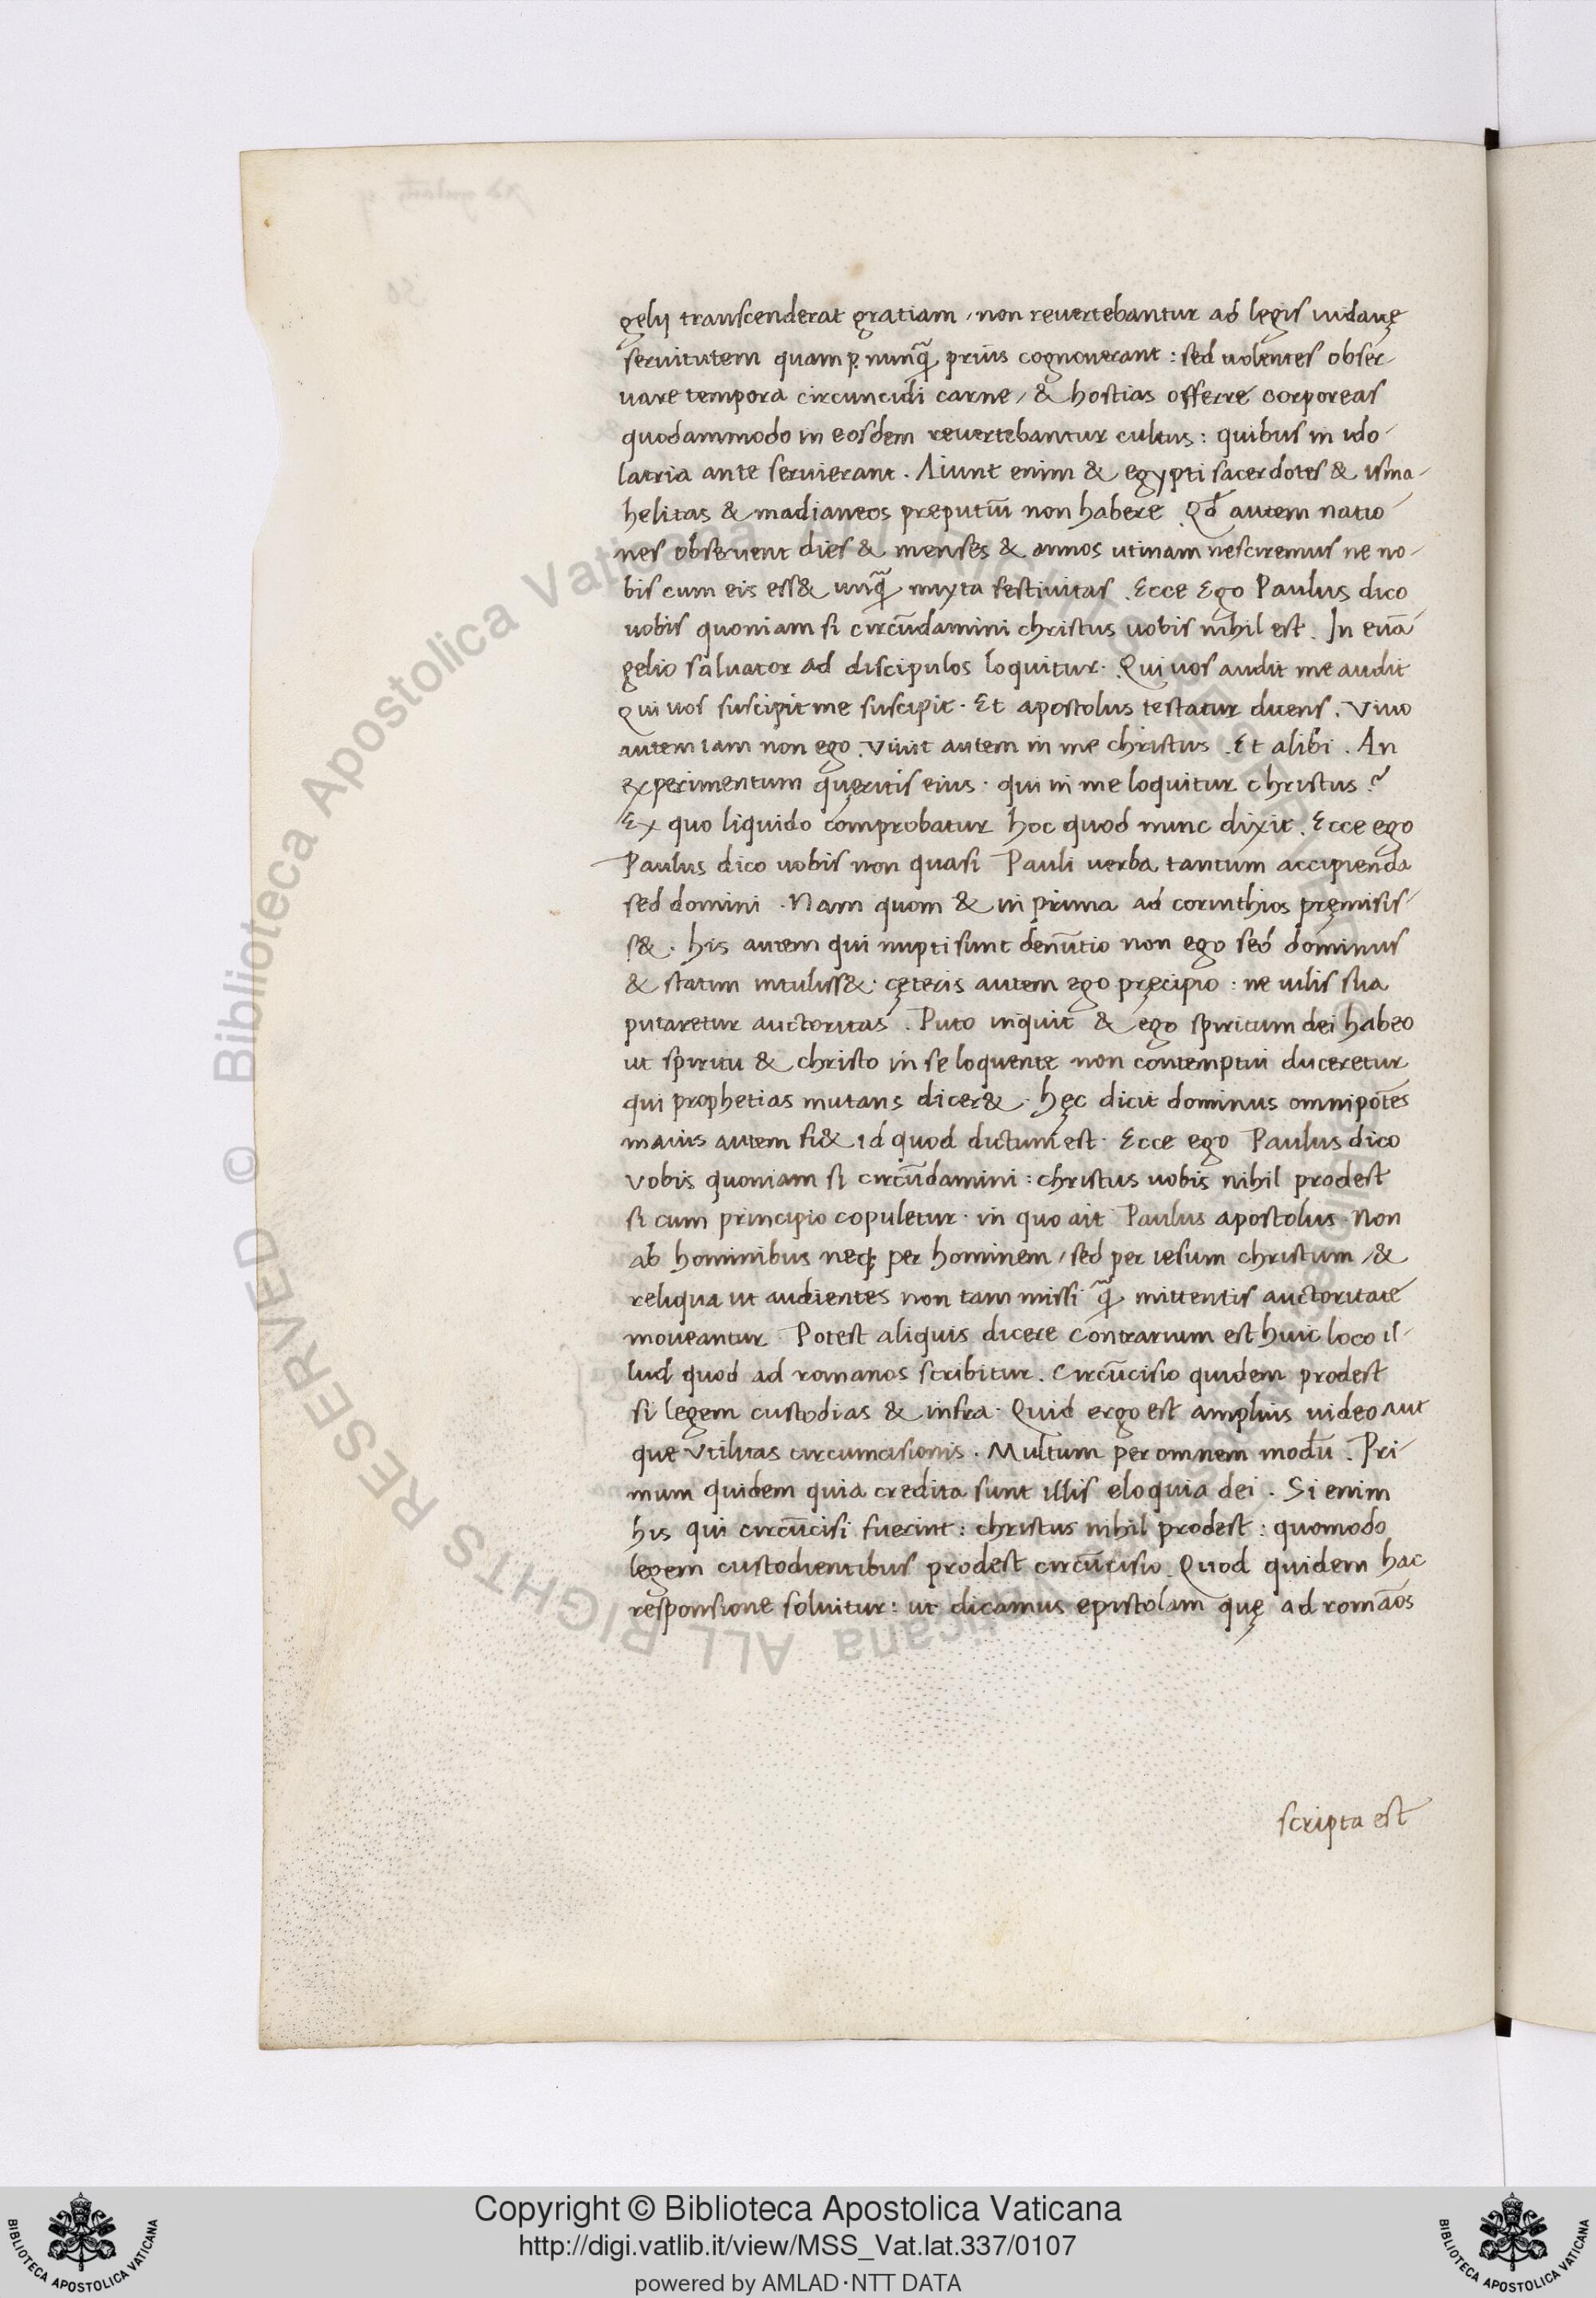 gelij transcenderat gratiam, non revertebantur ad legis iudaicę
seruitutem quam p. nunq̃ prius cognouerant: sed uolentes obser-
uare tempora circuncidi carne, & hostias offerre corporeas
quodammodo in eosdem reuertebantur cultus: quibus in ido-
latria ante seruierant. Aiunt enim & egypti sacerdotes & isma-
helitas & madianeos preputiũ non habere. Qd̃ autem natio-
nes obseruent dies & menses & annos utinam nesciremus ne no-
bis cum eis ess& unq̃ mixta festiuitas. Ecce Ego Paulus dico
uobis quoniam si circũdamini christus uobis nihil est. In euã
gelio saluator ad discipulos loquitur. Qui uos audit me audit
Qui uos suscipit me suscipit. Et apostolus testatur dicens. Viuo
autem iam non ego. Viuit autem in me christus. Et alibi. An
experimentum quęritis eius. qui in me loquitur christus?
Ex quo liquido comprobatur hoc quod nunc dixit. Ecce ego
Paulus dico uobis non quasi Pauli uerba tantum accipienda
sed domini. Nam quom & in prima ad corinthios pręmisis-
s&. his autem qui nupti sunt denũtio non ego sed dominus
& statim intuliss&. cęteris autem ego pręcipio: ne uilis sua
putaretur auctoritas. Puto inquit & ego spiritum dei habeo
ut spiritu & christo in se loquente non contemptui duceretur
qui prophetias mutans dicer&. hęc dicit dominus omnipõtes
maius autem fi& id quod dictum est. Ecce ego Paulus dico
vobis quoniam si circũdamini: christus uobis nihil prodest
si cum principio copuletur. in quo ait Paulus apostolus. Non
ab hominibus neq; per hominem, sed per iesum christum, &
reliqua ut audientes non tam missi q̃ mittentis auctoritate
moueantur. Potest aliquis dicere contrarium est huic loco il-
lud quod ad romanos scribitur. Circũcisio quidem prodest
si legem custodias & infra. Quid ergo est amplius uideo aut
que utilitas circumcisionis. Multum per omnem modũ. Pri-
mum quidem quia credita sunt illis eloquia dei. Si enim
his qui circũcisi fuerint: christus nihil prodest: quomodo
legem custodientibus prodest circũcisio. Quod quidem hac
responsione soluitur: ut dicamus epistolam quę ad romãos
scripta est
© Biblioteca Apostolica Vaticana ALL RIGHTS RESERVED
Copyright © Biblioteca Apostolica Vaticana
http://digi.vatlib.it/view/MSS_Vat.lat.337/0107
powered by AMLAD·NTT DATA
BIBLIOTECA APOSTOLICA VATICANA
BIBLIOTECA APOSTOLICA VATICANA